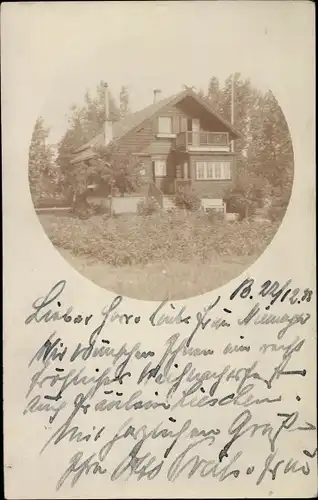 B. 22/12.33
Lieber Herr u. Frau
Wir wünschen Ihnen ein recht
fröhliches Weihnachtsfest
Auf Fräulein Lieschen.
Mit herzlichen Gruß
Ihre Otto u. Frau